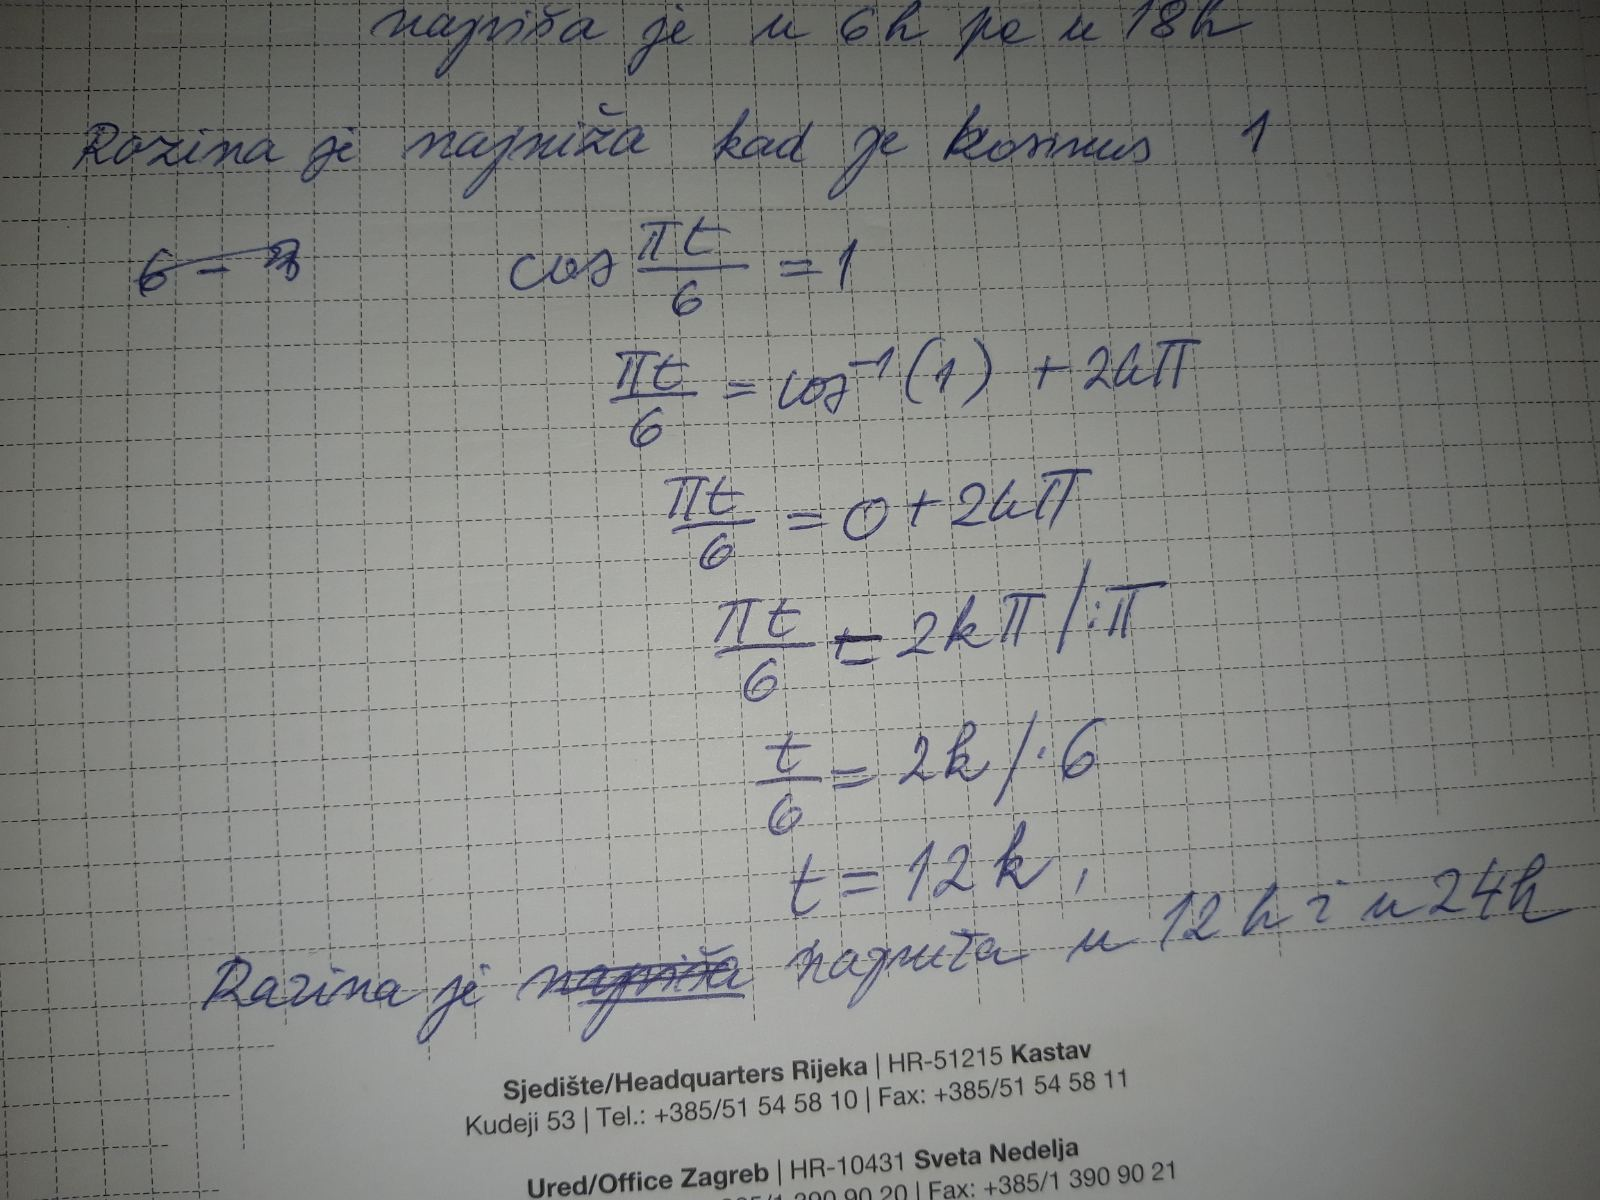 najviša je u 6h pa u 18h
Razina je najniža kad je kosinus 1
cos πt/6 = 1
πt/6 = cos⁻¹(1) + 2kπ
πt/6 = 0 + 2kπ
πt/6 = 2kπ /:π
t/6 = 2k /·6
t = 12k,
Razina je najniža u 12h i u 24h
Sjedište/Headquarters Rijeka | HR-51215 Kastav
Kudeji 53 | Tel.: +385/51 54 58 10 | Fax: +385/51 54 58 11
Ured/Office Zagreb | HR-10431 Sveta Nedelja
390 90 20 | Fax: +385/1 390 90 21